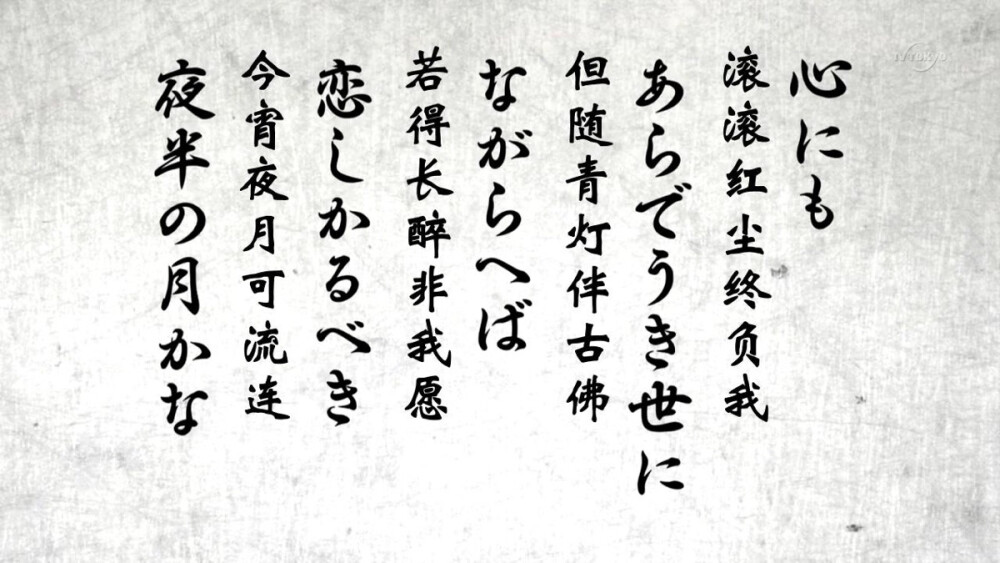 心にも
滚滚红尘终负我
あらでうき世に
但随青灯伴古佛
ながらへば
若得长醉非我愿
恋しかるべき
今宵夜月可流连
夜半の月かな
TV Tokyo